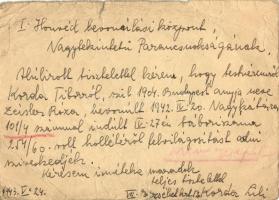 I. Honvéd bevonulási központ,
Nagytekintetű Parancsnokságának.
Alulírott tisztelettel kérem, hogy testvéremről
Korda Tiborról, szül. 1904. Budapest anyja neve
Zeisler Róza, bevonult 1942. IV. 20. Nagykáta
101/4 számmal indult IV-27én táboriszáma
254/60. ról hollétéről felvilágosítást adni
sziveskedjék.
Kérésem ismételve maradok
teljes tisztelettel
1943. V. 24.
Korda Lili